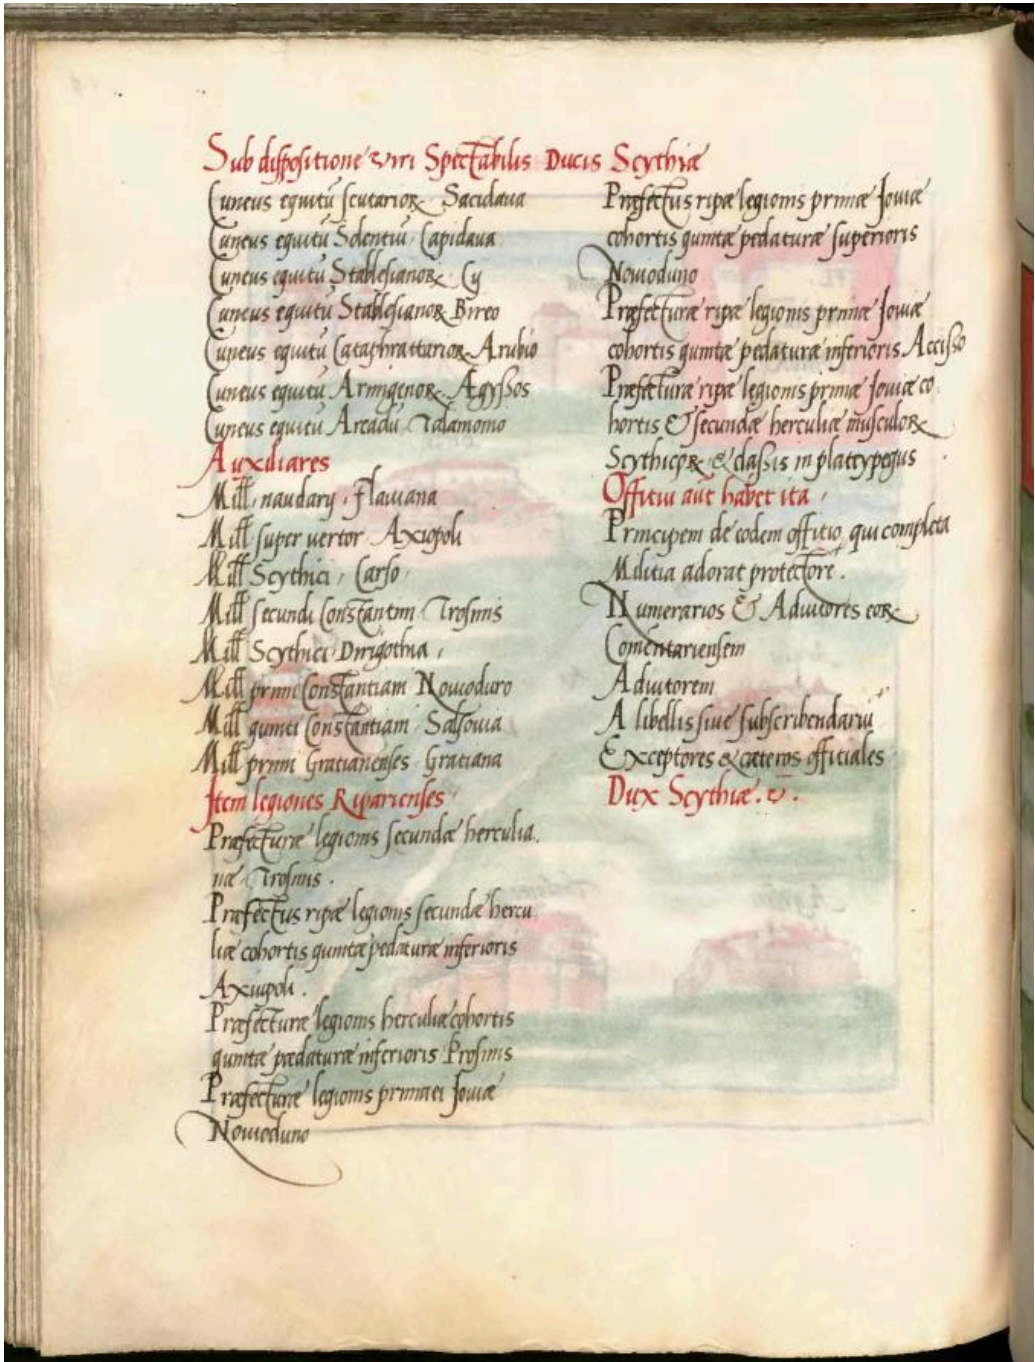 Sub dispositione viri Spectabilis Ducis Scythiæ
Cuneus equitū scutarioꝝ Sacidava
Cuneus equitū Solentiū Capidava
Cuneus equitū Stablesianoꝝ Cy
Cuneus equitū Stablesianoꝝ Bireo
Cuneus equitū Cataphrattarioꝝ Arubio
Cuneus equitū Armigeroꝝ Ægyssos
Cuneus equitū Arcadū Talamonio
Auxiliares
Mill. naudarij. Flaviana
Mill super vertor Axiopoli
Mill Scythici, Carso,
Mill secundi Constantini Trosmis
Mill Scythici Dirigothia,
Mill primi Constantiam Novioduro
Mill quinti Constantiam Salsovia
Mill primi Gratianenses Gratiana
Item legiones Riparienses
Præfecturæ legionis secundæ herculia.
næ Trosmis.
Præfectus ripæ legionis secundæ hercu
liæ cohortis quintæ pedaturæ inferioris
Axiupoli.
Præfecturæ legionis herculiæ cohortis
quintæ pædaturæ inferioris Prosmis
Præfecturæ legionis primaei Joviæ
Novioduno
Præfectus ripæ legionis primæ Joviæ
cohortis quintæ pedaturæ superioris
Novioduno
Præfecturæ ripæ legionis primæ Joviæ
cohortis quintæ pedaturæ inferioris Accisso
Præfectura ripæ legionis primæ Joviæ co.
hortis & secundæ herculiæ musculoꝝ
Scythicoꝝ & classis in plateypegus
Offitiū aūt habet ita,
Principem de eodem offitio, qui completa
Militia adorat protectore.
Numerarios & Adiutores eoꝝ
Comentariensem
Adiutorem
A libellis sive subscribendariū
Exceptores & cæteros offitiales
Dux Scythiæ. v̄.